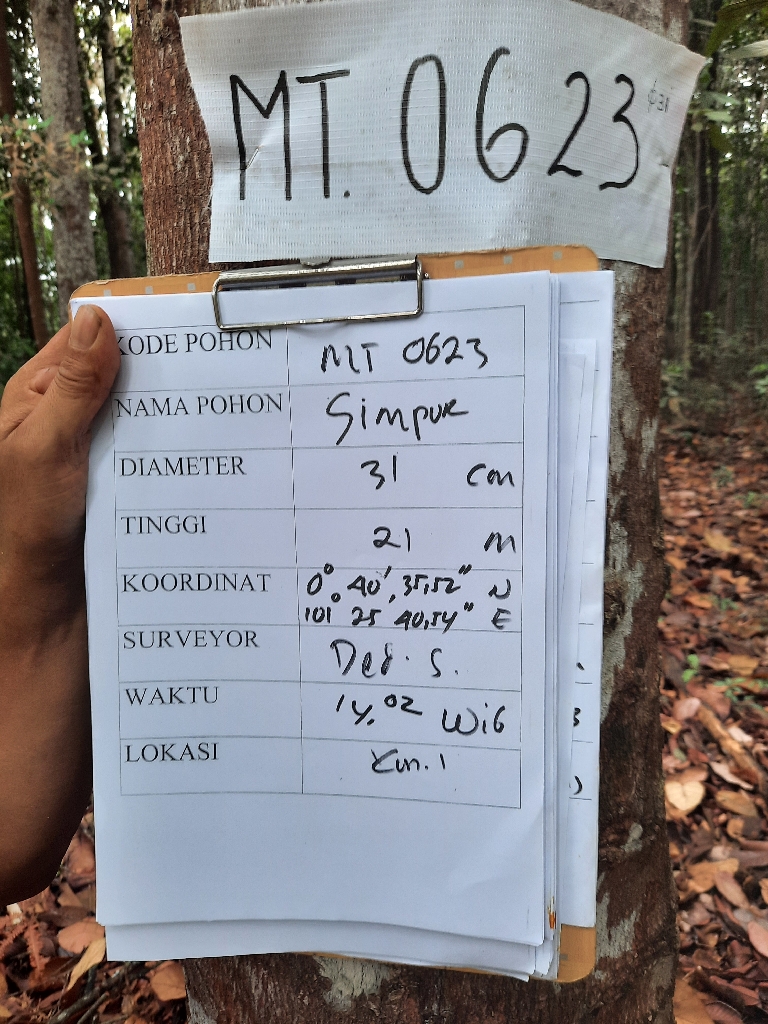 MT. 0623
KODE POHON MT 0623
NAMA POHON Simpur
DIAMETER 31 cm
TINGGI 21 m
KOORDINAT 0° 40', 35,52" N
101° 25 40,54" E
SURVEYOR Ded. S.
WAKTU 14.02 WiB
LOKASI